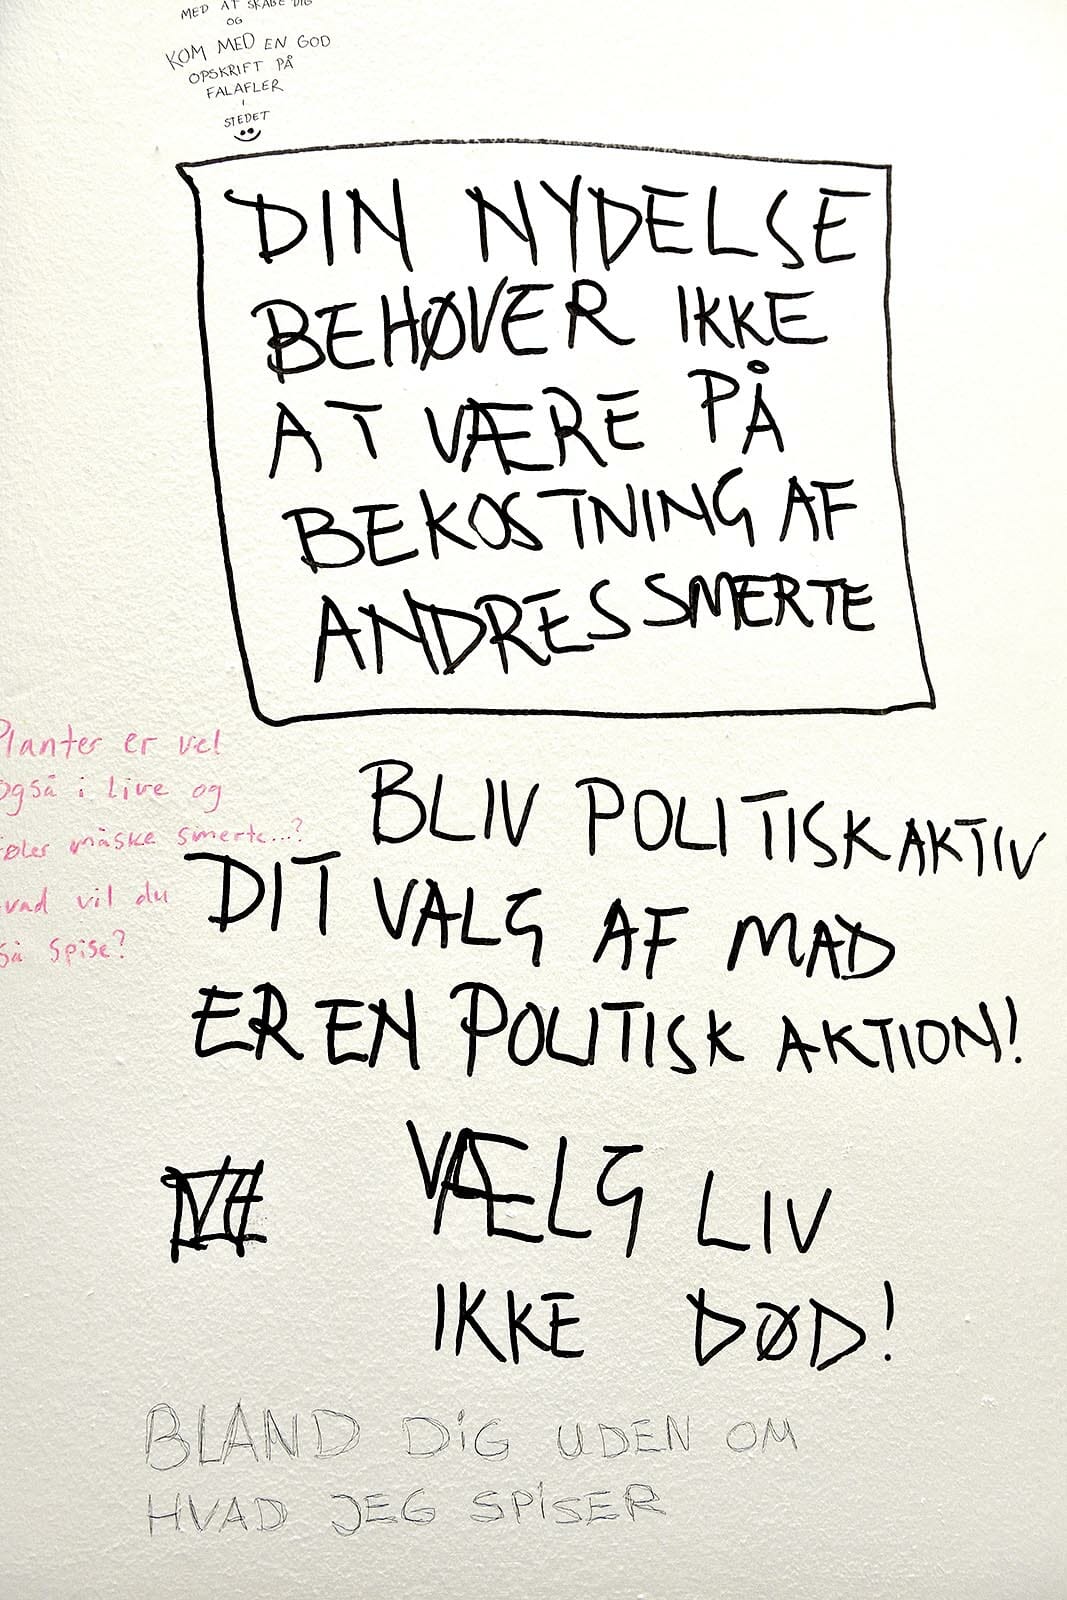 MED AT SKABE DIG
OG
KOM MED EN GOD
OPSKRIFT PÅ
FALAFLER
I
STEDET
DIN NYDELSE
BEHØVER IKKE
AT VÆRE PÅ
BEKOSTNING AF
ANDRES SMERTE
Planter er vel
også i live og
føler måske smerte...?
hvad vil du
så spise?
BLIV POLITISK AKTIV
DIT VALG AF MAD
ER EN POLITISK AKTION!
VÆLG LIV
IKKE DØD!
BLAND DIG UDEN OM
HVAD JEG SPISER